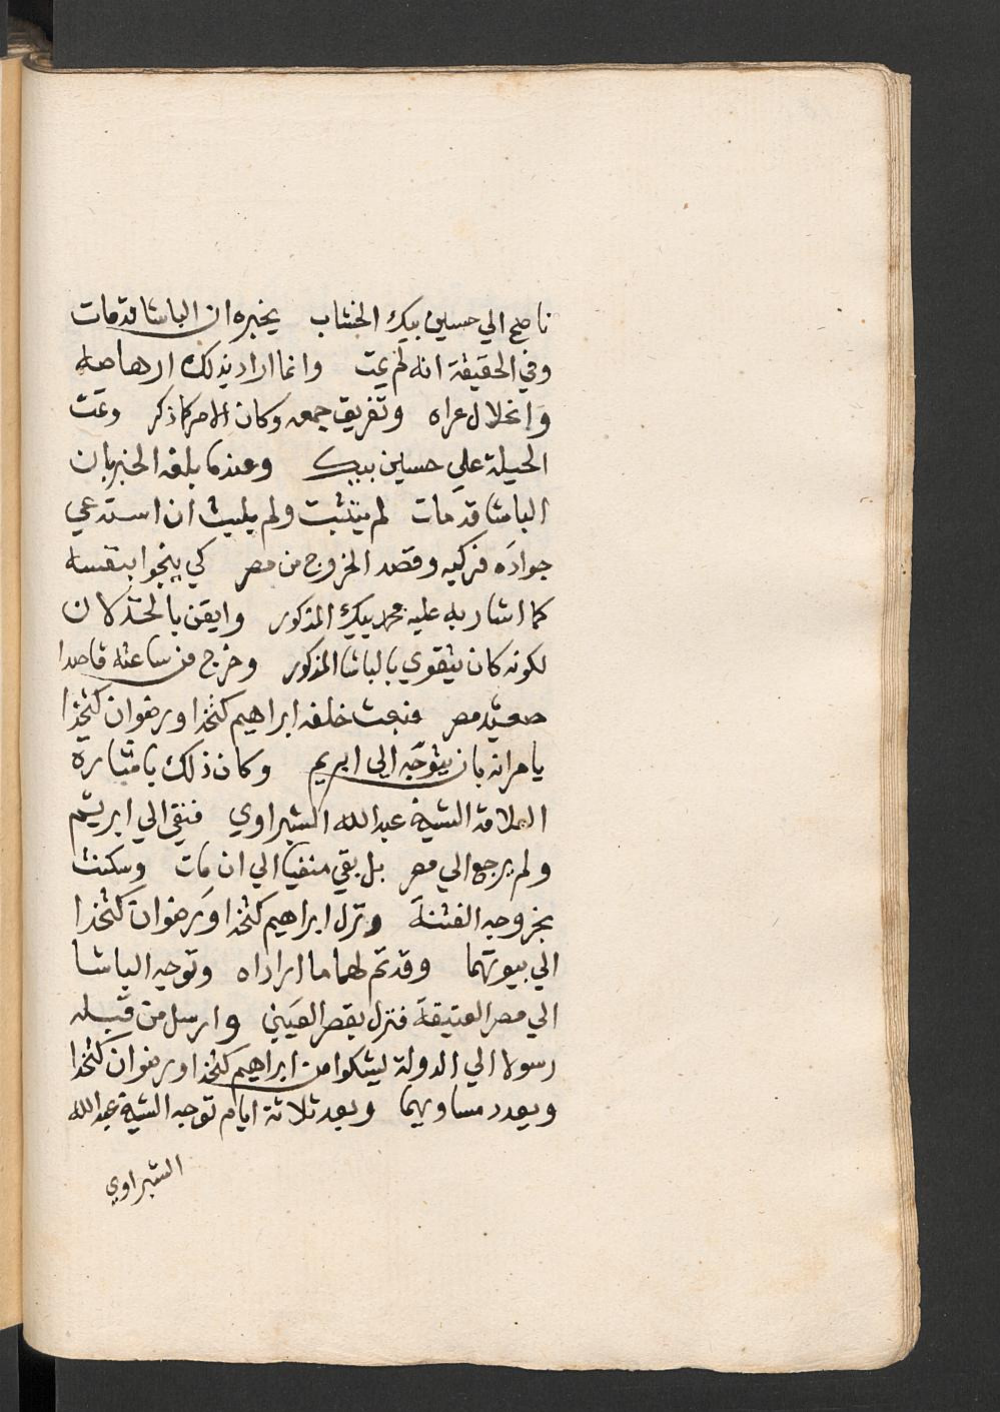 ناصح الي حسين بيك الخشاب يخبره ان الباشا قد مات
وفي الحقيقة انه لم يمت وانما اراد بذلك ارهاصه
وانحلال عراه وتفريق جمعه وكان الامر كما ذكر وتمت
الحيلة علي حسين بيك وعندما بلغه الخبر بان
الباشا قد مات لم يتثبت ولم يلبث ان استدعي
جواده فركبه وقصد الخروج من مصر كي ينجوا بنفسه
كما اشار به عليه محمد بيك المذكور وايقن بالخذلان
لكونه كان يتقوي بالباشا المذكور وخرج من ساعته قاصدا
صعيد مصر فبعث خلفه ابراهيم كتخدا ورضوان كتخدا
يامرانه بان يتوجه الي ابريم وكان ذلك باشارة
العلامة الشيخ عبدالله الشبراوي فنفي الي ابريم
ولم يرجع الي مصر بل بقي منفيا الي ان مات وسكنت
بخروجه الفتنة ونزل ابراهيم كتخدا ورضوان كتخدا
الي بيوتهما وقد تم لهما ما اراداه وتوجه الباشا
الي مصر العتيقة فنزل بقصر العيني وارسل من قبله
رسولا الي الدولة ليشكوا من ابراهيم كتخدا ورضوان كتخدا
ويعدد مساويهما وبعد ثلاثة ايام توجه الشيخ عبدالله
الشبراوي